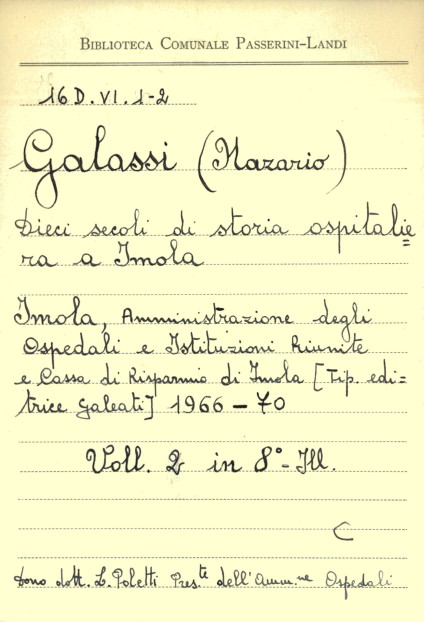 BIBLIOTECA COMUNALE PASSERINI-LANDI
16 D. VI. 1-2
Galassi (Nazario)
Dieci secoli di storia ospitalie=
ra a Imola
Imola, Amministrazione degli
Ospedali e Istituzioni Riunite
e Cassa di Risparmio di Imola [Tip. edi=
trice Galeati] 1966 – 70
Voll. 2 in 8° - Ill.
C
Dono dott. L. Poletti Pres.te dell'Amm.ne Ospedali